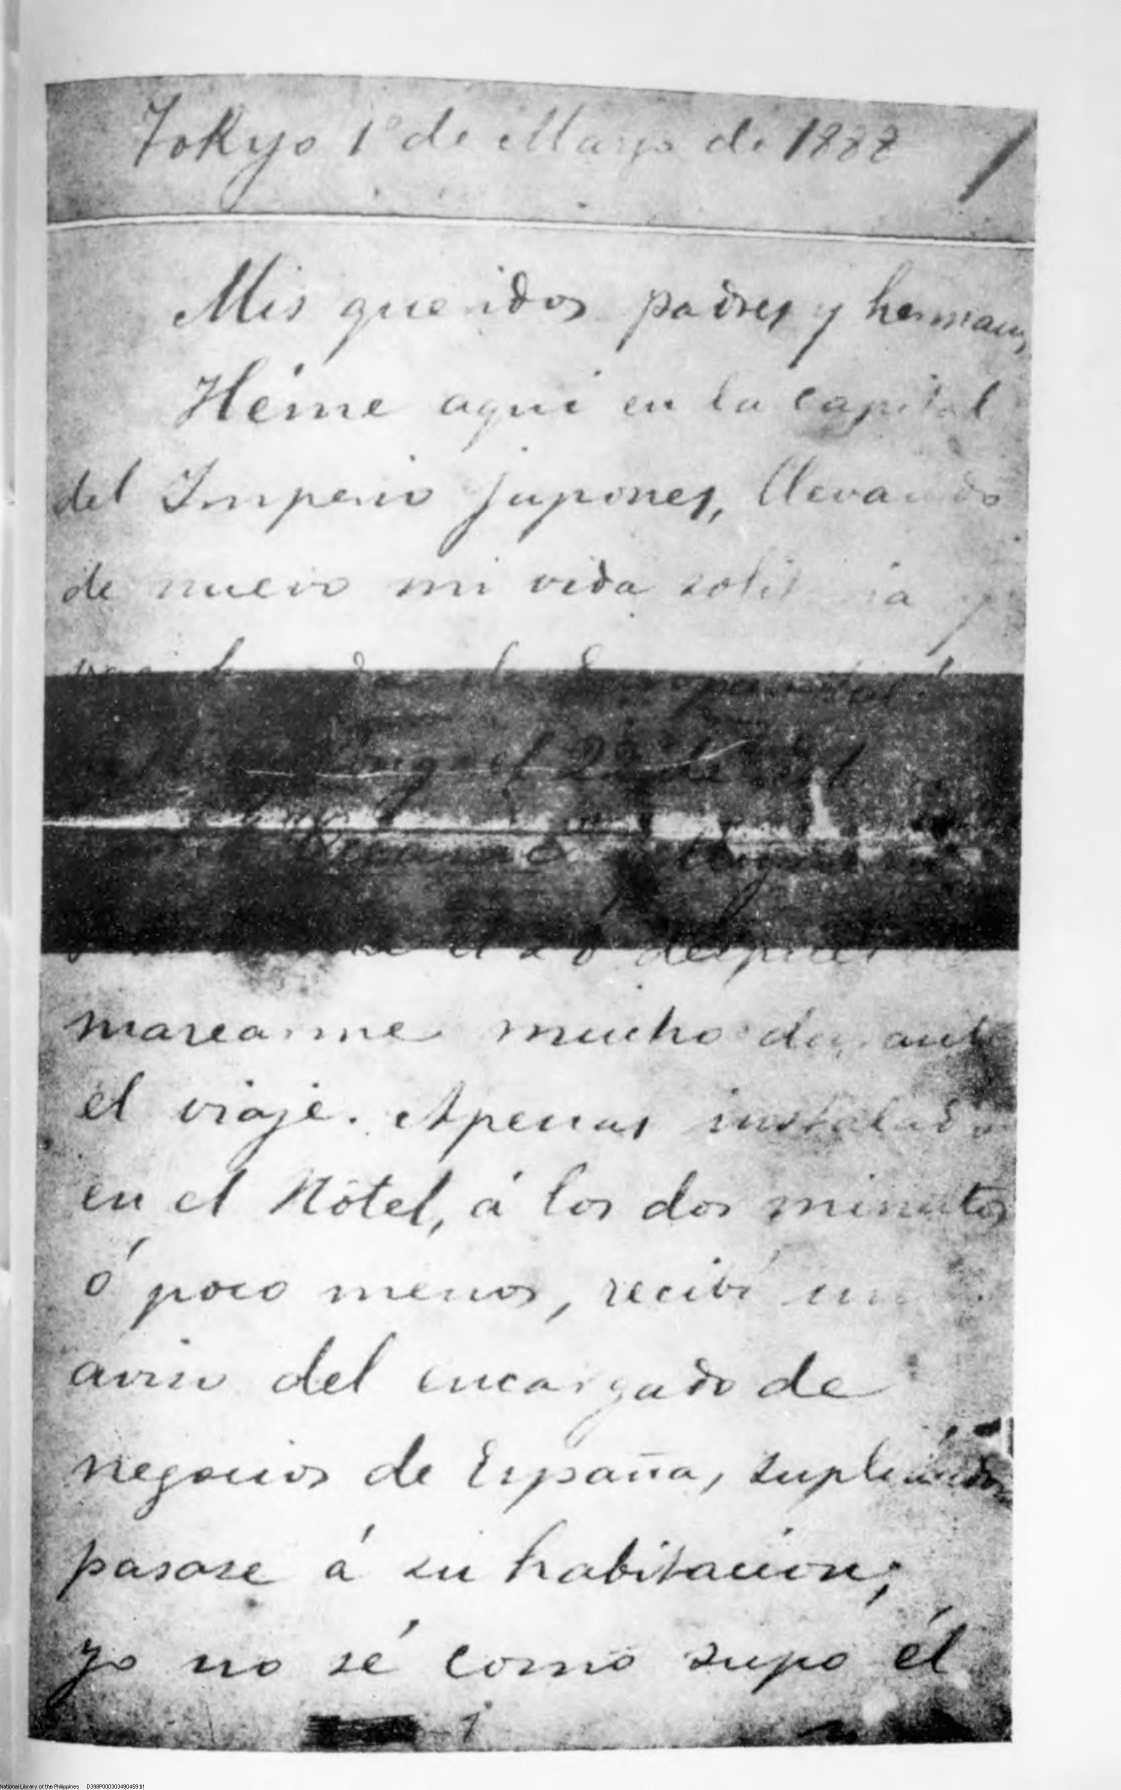 Tokyo 1º de Marzo de 1888
1
Mis queridos padres y hermanos,
Héme aqui en la capital
del Imperio japones, llevando
de nuevo mi vida solitaria y
el 22 de
el 28 despues
marearme mucho durante
el viaje. Apenas instalado
en el Hôtel, á los dos minutos
ó poco menos, recibí un
aviso del encargado de
negocios de España, suplicándome
pasase á su habitacion;
yo no sé como supo él
-1
National Library of the Philippines